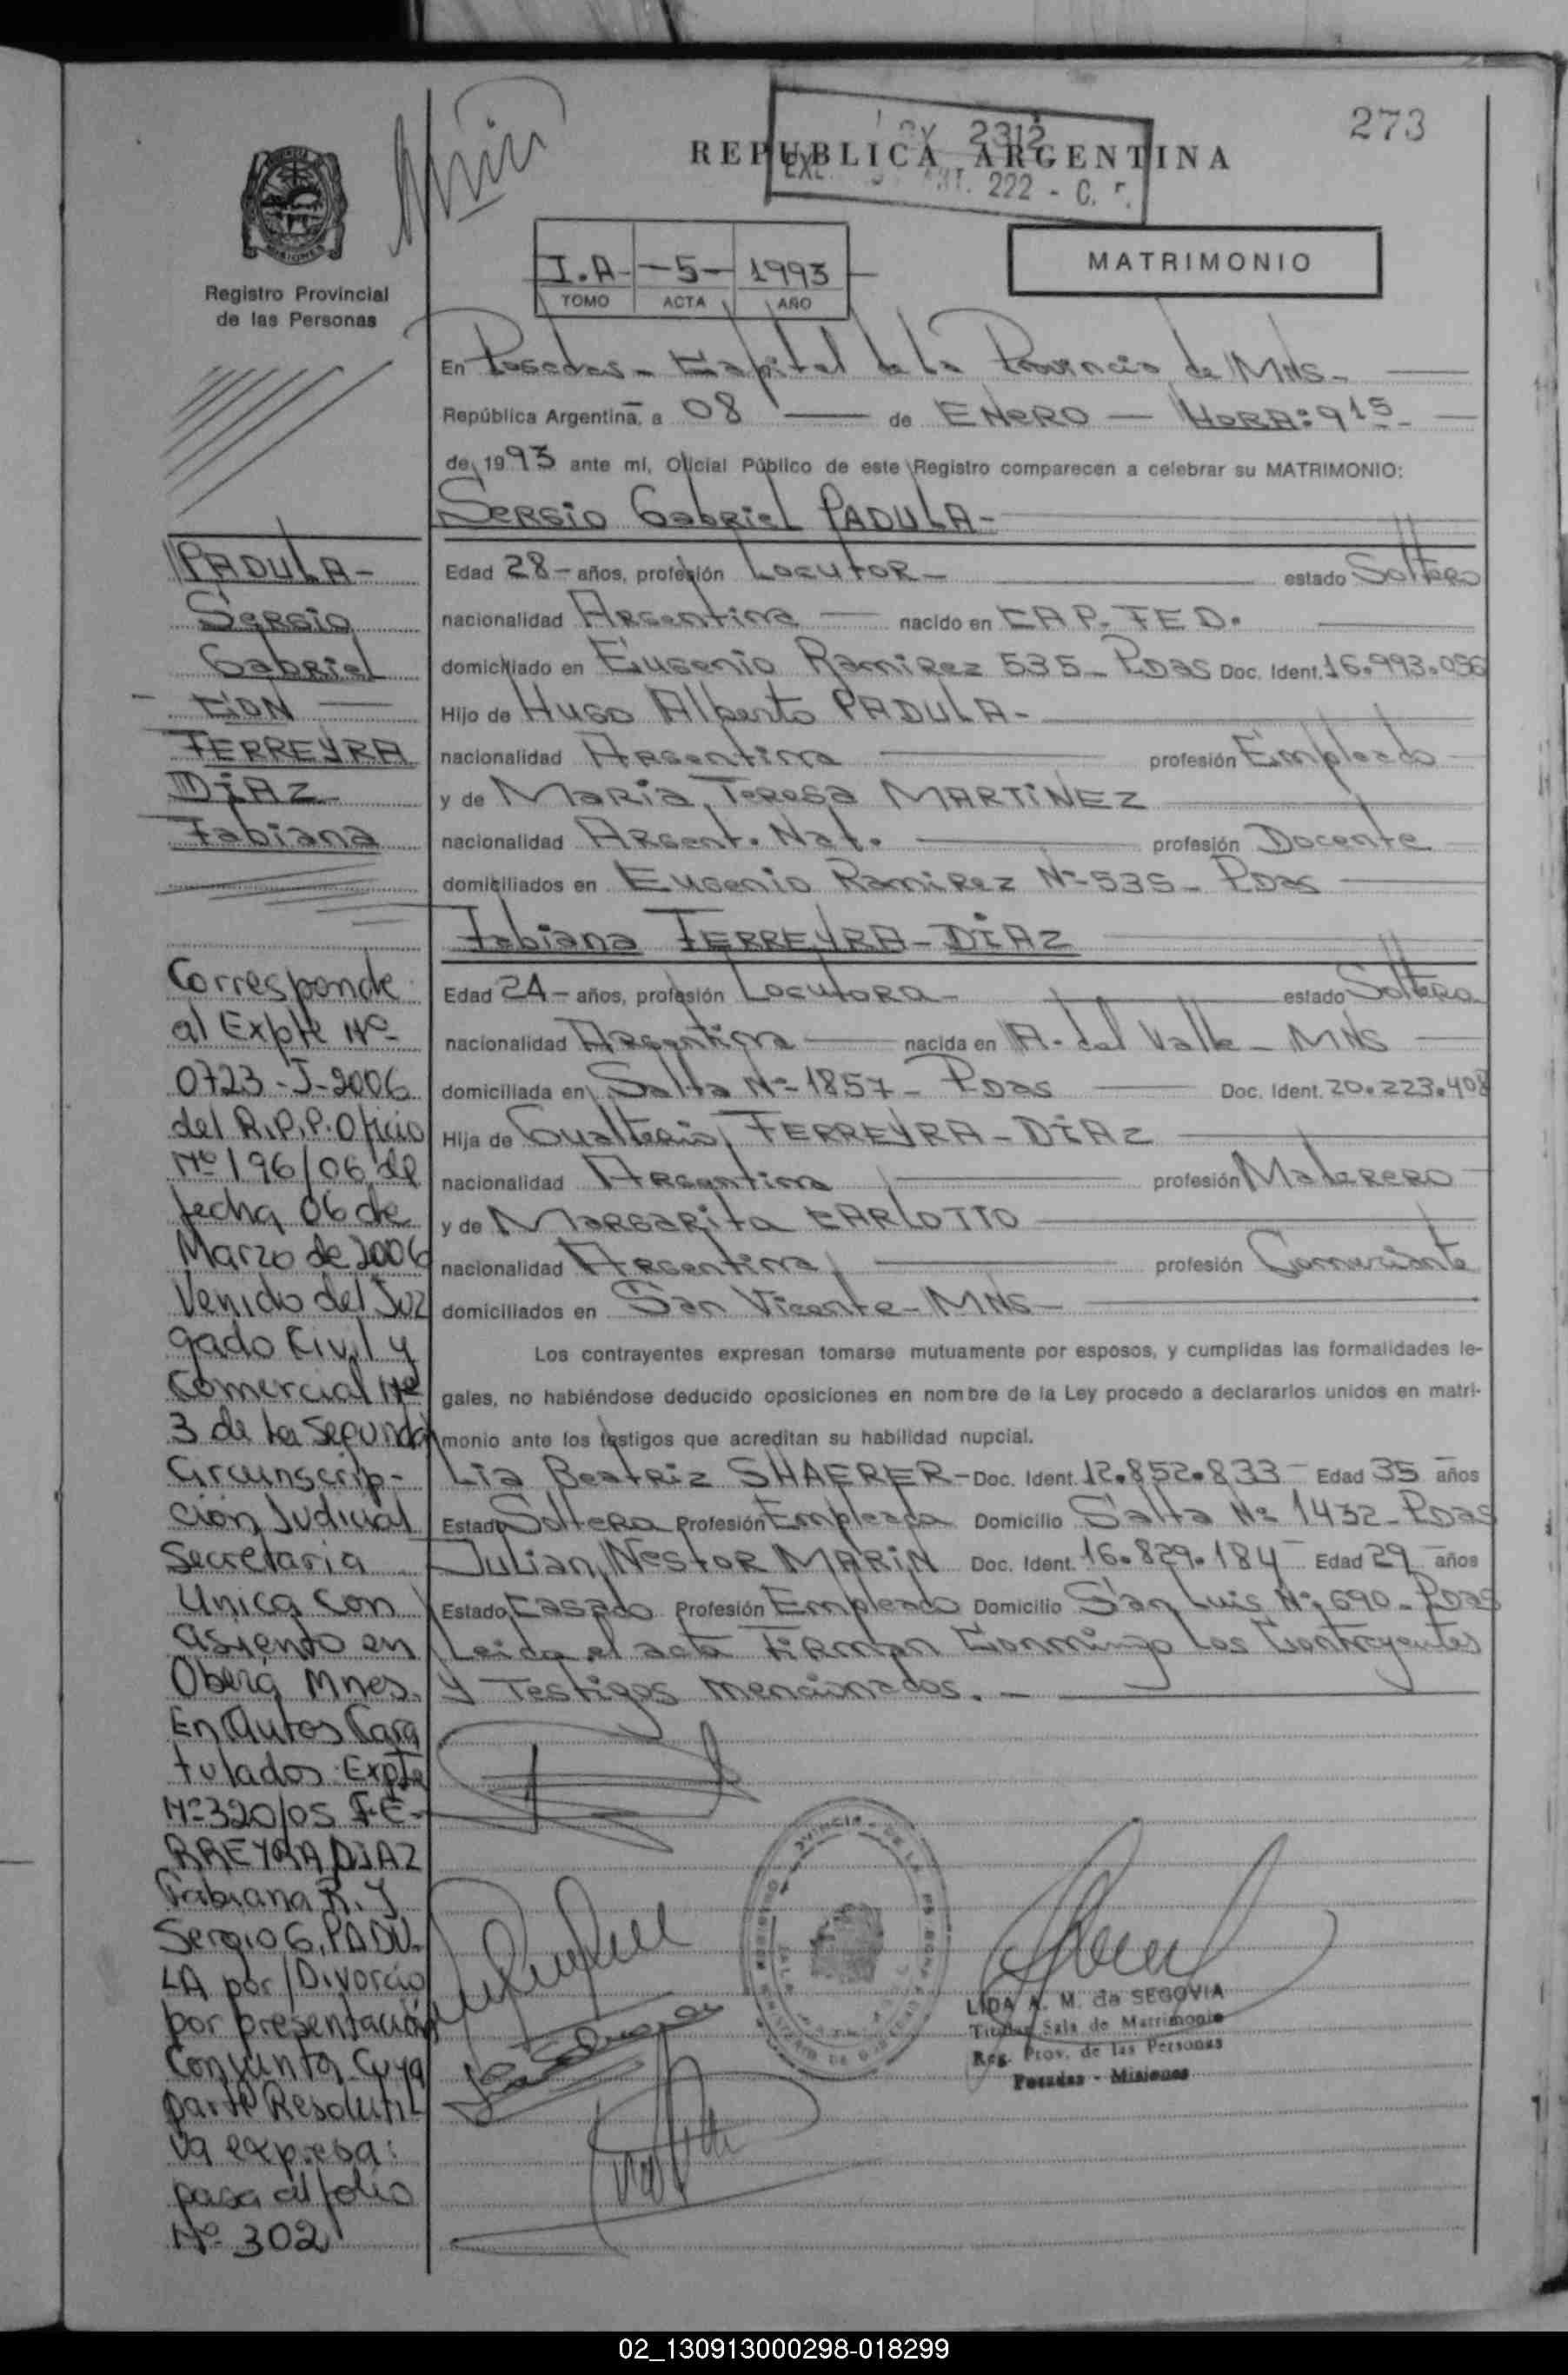 273
REPUBLICA ARGENTINA
LEY 2312
ART. 222 - C. F.
MISIONES
Registro Provincial
de las Personas
I.A- -5- 1993
TOMO ACTA AÑO
MATRIMONIO
En Posadas - Capital de la Provincia de MNS-
República Argentina, a 08 de ENERO - HORA: 9 15-
de 1993 ante mí, Oficial Público de este Registro comparecen a celebrar su MATRIMONIO:
Sergio Gabriel PADULA-
Edad 28- años, profesión Locutor- estado Soltero
nacionalidad Argentina nacido en CAP. FED.
domiciliado en Eugenio Ramirez 535- Pdas Doc. Ident. 16.993.056
Hijo de Hugo Alberto PADULA-
nacionalidad Argentina profesión Empleado
y de Maria Teresa MARTINEZ
nacionalidad Argent. Nat. profesión Docente
domiciliados en Eugenio Ramirez Nº 535- Pdas
Fabiana FERREYRA-DIAZ
Edad 24- años, profesión Locutora- estado Soltera
nacionalidad Argentina nacida en A. del Valle - MNS
domiciliada en Salta Nº 1857- Pdas Doc. Ident. 20.223.408
Hija de Gualterio FERREYRA-DIAZ
nacionalidad Argentina profesión Maderero
y de Margarita CARLOTTO
nacionalidad Argentina profesión Comerciante
domiciliados en San Vicente - MNS-
Los contrayentes expresan tomarse mutuamente por esposos, y cumplidas las formalidades le-
gales, no habiéndose deducido oposiciones en nombre de la Ley procedo a declararlos unidos en matri-
monio ante los testigos que acreditan su habilidad nupcial.
Lia Beatriz SHAERER- Doc. Ident. 12.852.833 Edad 35 años
Estado Soltera Profesión Empleada Domicilio Salta Nº 1432- Pdas
Julian Nestor MARIN Doc. Ident. 16.829.184 Edad 29 años
Estado Casado Profesión Empleado Domicilio San Luis Nº 690- Pdas
Leida el acta Firman Conmigo Los Contrayentes
y Testigos mencionados.-
LIDA A. M. de SEGOVIA
Titular Sala de Matrimonio
Reg. Prov. de las Personas
Posadas - Misiones
PADULA-
Sergio
Gabriel
CON
FERREYRA
DIAZ
Fabiana
Corresponde
al Expte Nº
0723-J-2006
del R.P.P. Oficio
Nº 196/06 de
fecha 06 de
Marzo de 2006
Venido del Juz
gado Civil y
Comercial Nº
3 de la Segunda
Circunscrip-
ción Judicial
Secretaria
Unica con
asiento en
Oberá Mnes.
En Autos Cara
tulados Expte
Nº 320/05 FE-
RREYRA DIAZ
Fabiana R. y
Sergio G. PADU-
LA por/Divorcio
por presentación
Conjunta Cuya
parte Resoluti-
va expresa:
pasa al folio
Nº 302
02_130913000298-018299